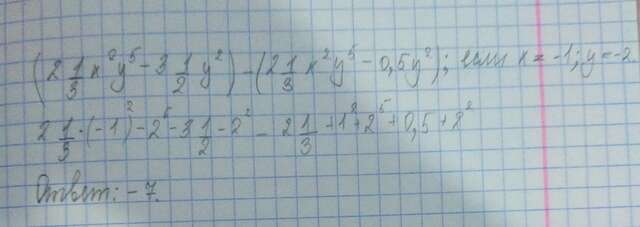 (2 1/3 x²y⁵ - 3 1/2 y²) - (2 1/3 x²y⁵ - 0,5y²); если x = -1; y = -2
2 1/3 · (-1)² - 2⁵ - 3 1/2 - 2² - 2 1/3 + 1² + 2⁵ + 0,5 + 2²
Ответ: - 7.